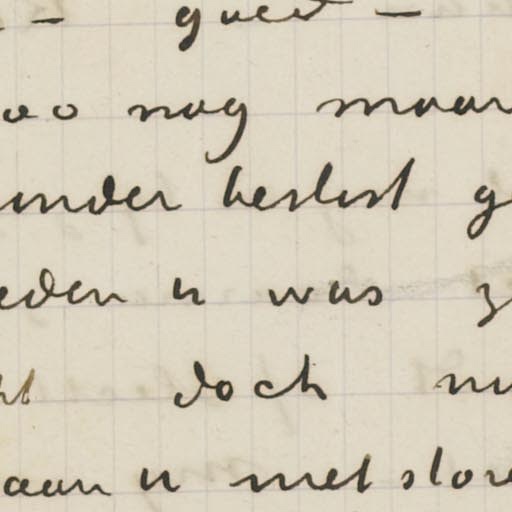 - goed -
zoo nog maar
onder beslist g
eden u was z
ht doch nu
aan u met store